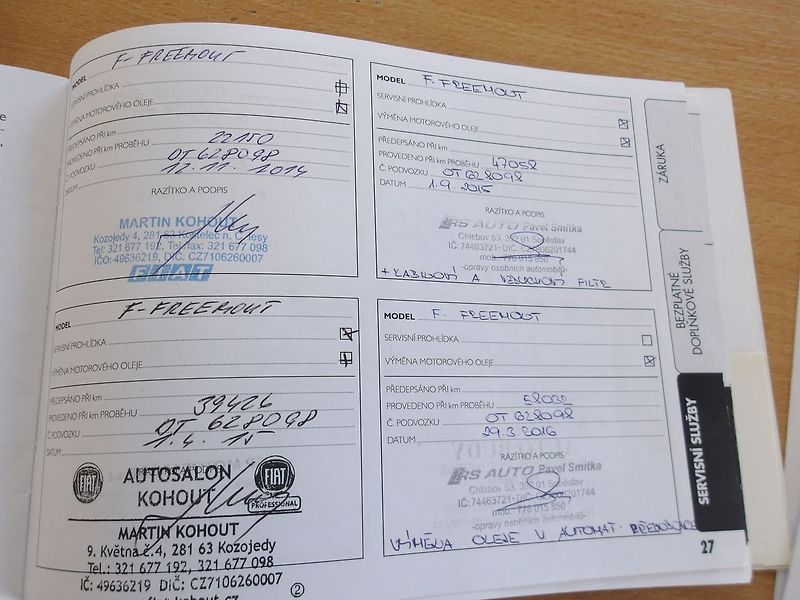 MODEL F- FREEMOUT
SERVISNÍ PROHLÍDKA
VÝMĚNA MOTOROVÉHO OLEJE
PŘEDEPSÁNO PŘI km
PROVEDENO PŘI km PROBĚHU 22150
Č. PODVOZKU OT 628098
DATUM 12.11.2014
RAZÍTKO A PODPIS
MARTIN KOHOUT
Kozojedy 4, 281 63 Kostelec n. Č. lesy
Tel: 321 677 192, Tel./fax: 321 677 098
IČO: 49636219, DIČ: CZ7106260007
FIAT
MODEL F- FREEMOUT
SERVISNÍ PROHLÍDKA
VÝMĚNA MOTOROVÉHO OLEJE
PŘEDEPSÁNO PŘI km
PROVEDENO PŘI km PROBĚHU 39426
Č. PODVOZKU OT 628098
DATUM 1.4. 15
FIAT AUTOSALON FIAT
KOHOUT PROFESSIONAL
MARTIN KOHOUT
9. Května č.4, 281 63 Kozojedy
Tel.: 321 677 192, 321 677 098
IČ: 49636219 DIČ: CZ7106260007
2
MODEL F. FREEMOUT
SERVISNÍ PROHLÍDKA
VÝMĚNA MOTOROVÉHO OLEJE
PŘEDEPSÁNO PŘI km
PROVEDENO PŘI km PROBĚHU 47058
Č. PODVOZKU OT 628098
DATUM 1.9. 2015
RAZÍTKO A PODPIS
RS AUTO Pavel Smitka
Chlebov 53, 392 01 Soběslav
IČ: 74463721, DIČ: CZ7906201744
mob.: 776 015 850
-opravy osobních automobilů-
+ KABINOVÝ A VZDUCHOVÝ FILTR
MODEL F. FREEMOUT
SERVISNÍ PROHLÍDKA
VÝMĚNA MOTOROVÉHO OLEJE
PŘEDEPSÁNO PŘI km
PROVEDENO PŘI km PROBĚHU 58022
Č. PODVOZKU OT 628098
DATUM 29.3 2016
RAZÍTKO A PODPIS
RS AUTO Pavel Smitka
Chlebov 53, 392 01 Soběslav
IČ: 74463721, DIČ: CZ7906201744
mob.: 776 015 850
-opravy osobních automobilů-
VÝMĚNA OLEJE V AUTOMAT.
27
ZÁRUKA
BEZPLATNÉ
DOPLŇKOVÉ SLUŽBY
SERVISNÍ SLUŽBY